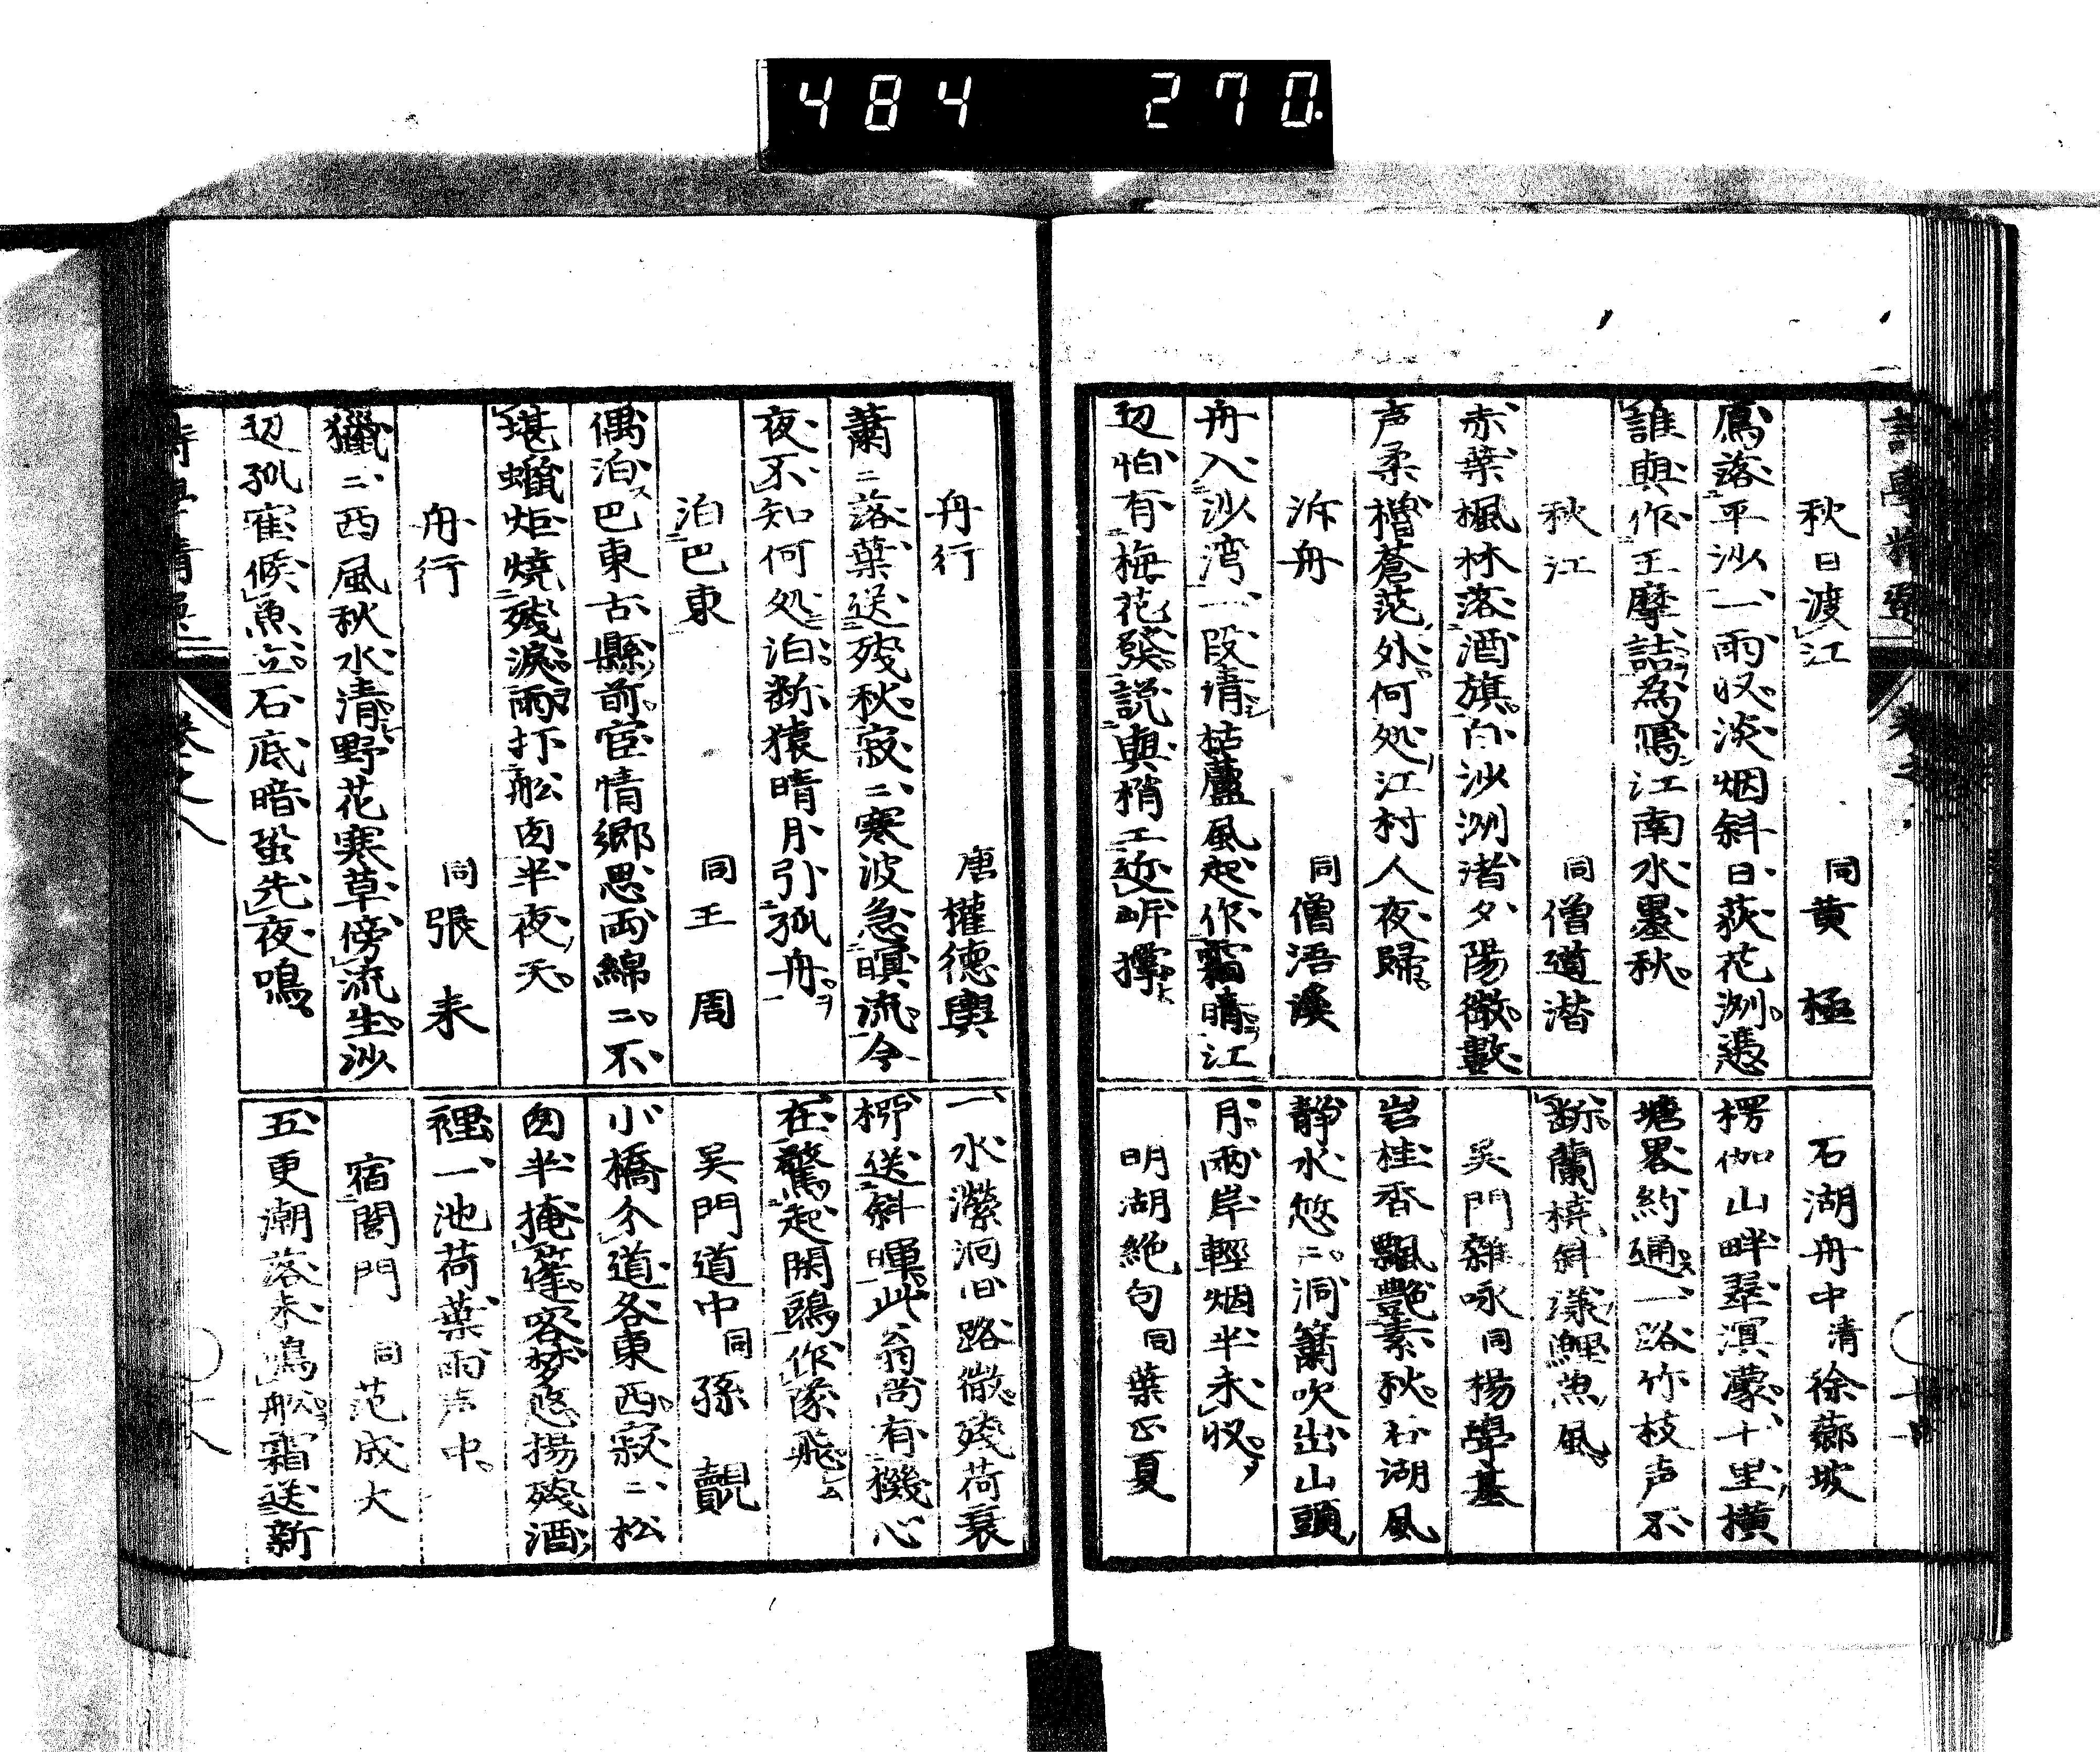 484 270.
秋日渡江 同 黄極
鴈落平沙一雨収淡烟斜日荻花洲憑
誰與作王摩詰為寫江南水墨秋
秋江 同 僧道潜
赤葉楓林落酒旗白沙洲渚夕陽微數
声柔櫓蒼茫外何処江村人夜歸
泝舟 同 僧浯溪
舟入沙湾一段清枯蘆風起作霜晴江
辺怕有梅花發説與梢工近岍撑
石湖舟中 清 徐薌坡
楞伽山畔翠溟濛十里横
塘畧約通一路竹枝声不
断蘭橈斜漾鯉魚風
吴門雜咏 同 楊學基
岩桂香飄艶素秋石湖風
静水悠二洞簫吹出山頭
月兩岸輕烟半未収
明湖絶句 同 葉正夏
舟行 唐 權德輿
蕭二落葉送残秋寂二寒波急暝流今
夜不知何処泊断猿晴月引孤舟
泊巴東 同 王周
偶泊巴東古縣前宦情郷思両綿二不
堪蠟炬燒殘淚雨打舩囱半夜天
舟行 同 張耒
獵二西風秋水清野花寒草傍流生沙
辺孤寉候魚立石底暗蛩先夜鳴
一水濴洄旧路微残荷衰
栁送斜暉此翁尚有機心
在驚起閑鷗作隊飛
吴門道中 同 孫覿
小橋分道各東西寂二松
囱半掩蓬客梦悠揚殘酒
裡一池荷葉雨声中
宿閶門 同 范成大
五更潮落未鳴舩霜送新